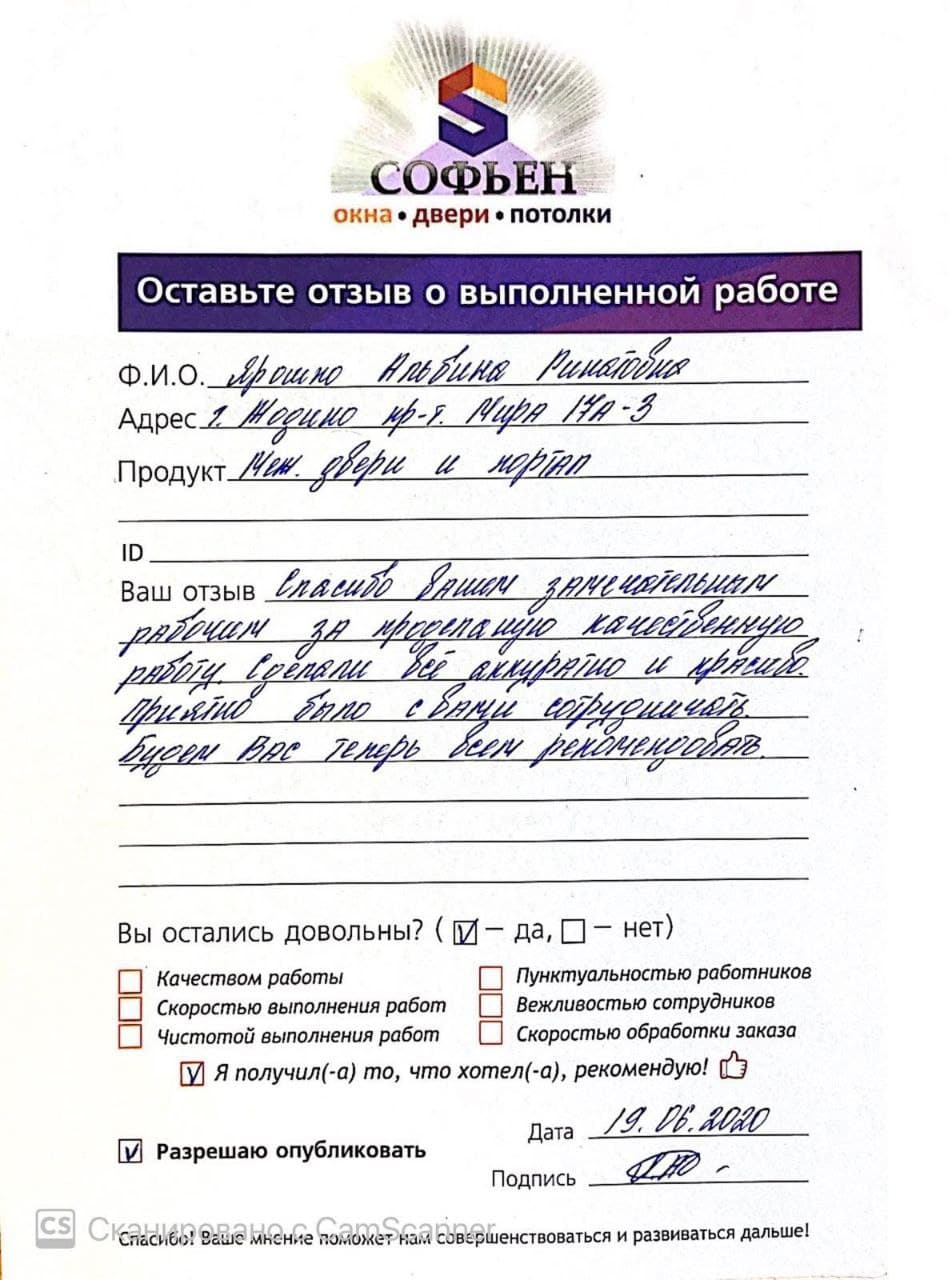 СОФЬЕН
окна • двери • потолки
Оставьте отзыв о выполненной работе
Ф.И.О. Ярошко Альбина Ринатовна
Адрес г. Жодино пр-т. Мира 17А-3
Продукт Меж. двери и портал
ID
Ваш отзыв Спасибо вашем замечательным
рабочим за проделаную качественную
работу. Сделали всё аккуратно и красиво.
Приятно было с вами сотрудничать.
Будем Вас теперь всем рекомендовать.
Вы остались довольны? ( – да, – нет)
Качеством работы Пунктуальностью работников
Скоростью выполнения работ Вежливостью сотрудников
Чистотой выполнения работ Скоростью обработки заказа
Я получил(-а) то, что хотел(-а), рекомендую!
Дата 19.06.2020
Разрешаю опубликовать
Подпись
CS Сканировано с CamScanner
Спасибо! Ваше мнение поможет нам совершенствоваться и развиваться дальше!